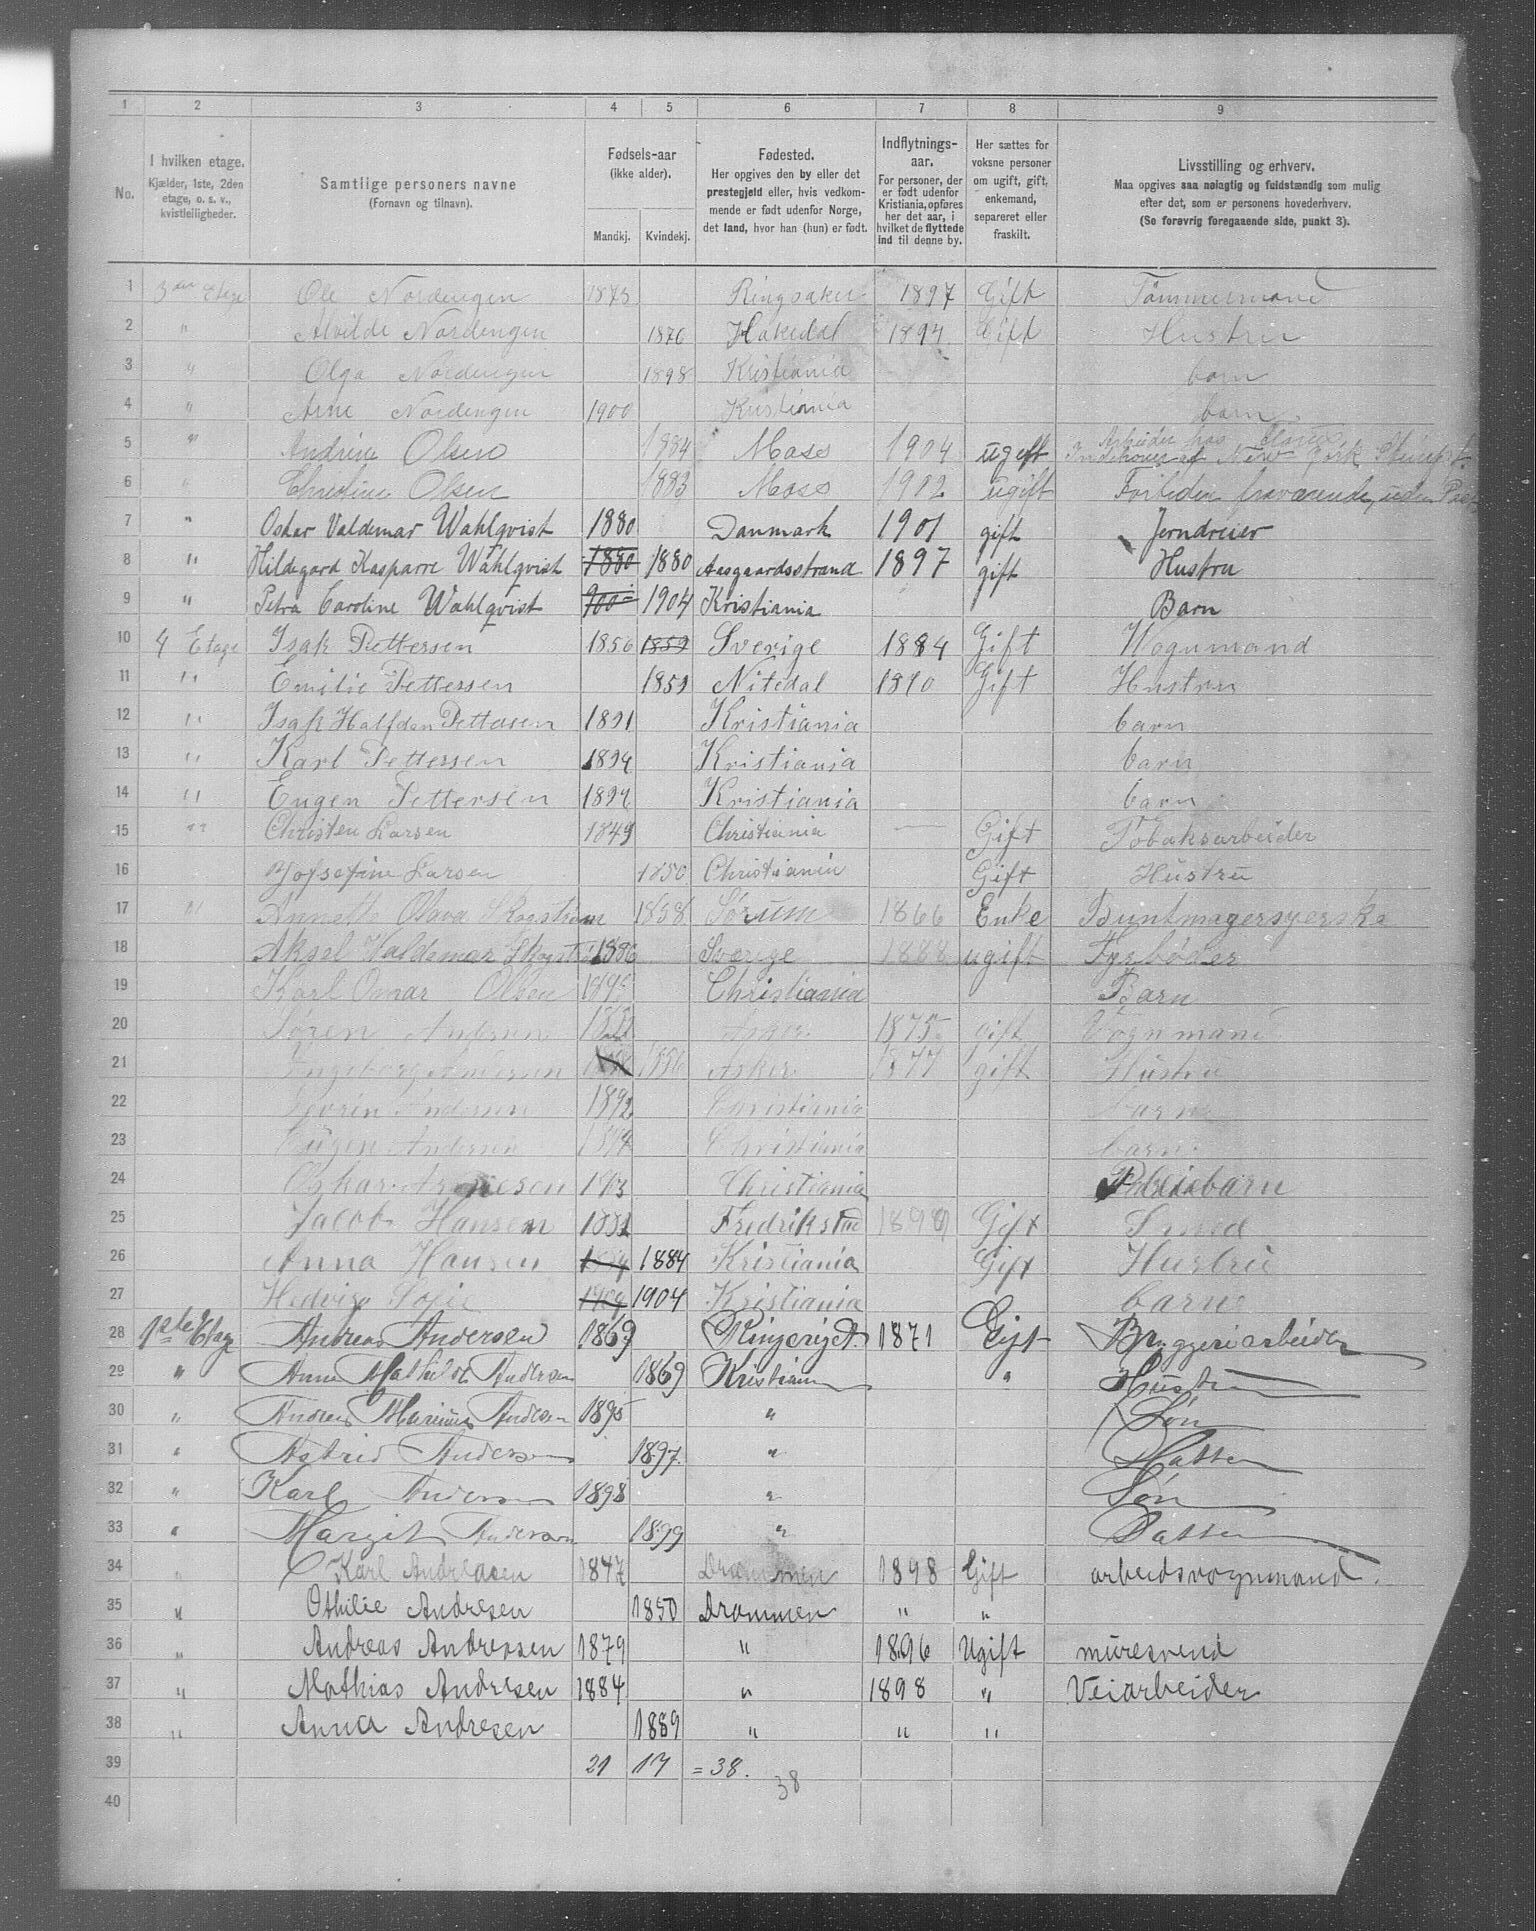 1 2 3 4 5 6 7 8 9
No.
I hvilken etage.
Kjælder, 1ste, 2den
etage, o. s. v.,
kvistleiligheder.
Samtlige personers navne
(Fornavn og tilnavn).
Fødsels-aar
(ikke alder).
Mandkj. Kvindekj.
Fødested.
Her opgives den by eller det
prestegjeld eller, hvis vedkom-
mende er født udenfor Norge,
det land, hvor han (hun) er født.
Indflytnings-
aar.
For personer, der
er født udenfor
Kristiania, opføres
her det aar, i
hvilket de flyttede
ind til denne by.
Her sættes for
voksne personer
om ugift, gift,
enkemand,
separeret eller
fraskilt.
Livsstilling og erhverv.
Maa opgives saa nøiagtig og fuldstændig som mulig
efter det, som er personens hovederhverv.
(Se forøvrig foregaaende side, punkt 3).
1 3den Etage Ole Nordengen 1873 Ringsaker 1897 Gift Tømmermand
2 " Alvilde Nordengen 1876 Hakedal 1894 Gift Hustru
3 " Olga Nordengen 1898 Kristiania barn
4 " Arne Nordengen 1900 Kristiania barn
5 " Andrine Olsen 1884 Moss 1904 ugift Arbeider hos New York
6 " Christine Olsen 1883 Moss 1902 ugift Fortiden fraværende, uden
7 " Oskar Valdemar Wahlqvist 1880 Danmark 1901 gift Jerndreier
8 " Hildegard Kasparre Wahlqvist 1880 1880 Aasgaardsstrand 1897 gift Hustru
9 " Petra Caroline Wahlqvist 900 1904 Kristiania Barn
10 4 Etage Isak Pettersen 1856 1859 Sverige 1884 Gift Vognmand
11 " Emilie Pettersen 1859 Nitedal 1870 Gift Hustru
12 " Isak Halfdan Pettersen 1891 Kristiania barn
13 " Karl Pettersen 1894 Kristiania barn
14 " Eugen Pettersen 1897 Kristiania barn
15 " Christen Larsen 1849 Christiania — Gift Tobaksarbeider
16 Josefine Larsen 1850 Christiania Gift Hustru
17 " Annette Olava Skogstrøm 1858 Sørum 1866 Enke Buntmagersyerske
18 Aksel Valdemar 1886 Sverige 1888 ugift Fyrbøder
19 Karl Omar Olsen 1895 Christiania Barn
20 Søren Andersen Asker 1875 gift Vognmand
21 Ingeborg Andersen 1856 Asker 1877 gift Hustru
22 Andersen 1892 Christiania barn
23 Eugen Andersen 1894 Christiania barn
24 Oskar 1903 Christiania Pleiebarn
25 Jacob Hansen 1882 Fredrikstad Gift Smed
26 Anna Hansen 1884 Kristiania Gift Hustru
27 Hedvig Sofie 1904 1904 Kristiania barn
28 1ste Etage Andreas Andersen 1869 Ringerige 1871 Gift Bryggeriarbeider
29 " Anna Mathilde Andersen 1869 Kristiania " Hustru
30 " Andreas Marinus Andersen 1895 " Søn
31 " Astrid Andersen 1897 " Datter
32 " Karl Andersen 1898 " Søn
33 " Margit Andersen 1899 " Datter
34 " Karl Andreasen 1847 Drammen 1898 Gift arbeidsvognmand.
35 " Othilie Andresen 1850 Drammen " "
36 " Andreas Andreasen 1879 " 1896 Ugift muresvend
37 " Mathias Andresen 1884 " 1898 " Veiarbeider
38 " Anna Andresen 1889 " " "
39 21 17 = 38.
38
40